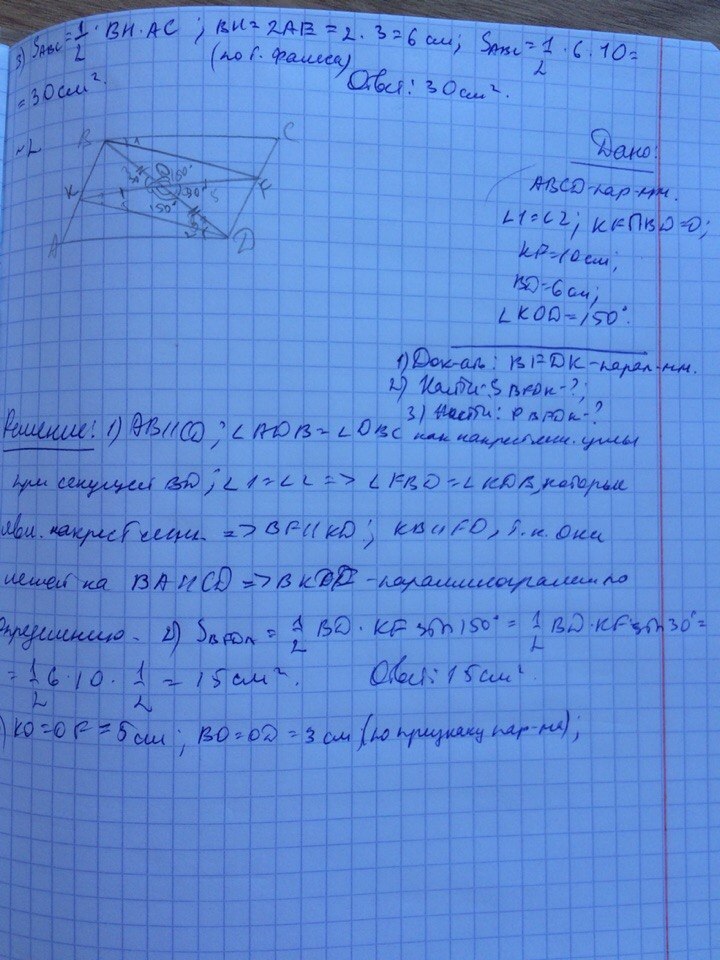 3) S_ABC = 1/2 · BH · AC ; BH = 2AE = 2 · 3 = 6 см ; S_ABC = 1/2 · 6 · 10 =
(по т. Фалеса)
= 30 см². Ответ: 30 см².
B C
K O F
150° 30°
150°
A D
Дано:
ABCD - пар-мм.
∠1 = ∠2; KF∩BD = O;
KF = 10 см;
BD = 6 см;
∠KOD = 150°.
1) Док-ать: BFDK - парал-мм.
2) Найти: S BFDK - ?;
3) Найти: P BFDK - ?
Решение: 1) AB||CD; ∠ADB = ∠DBC как накрест леж. углы
при секущей BD; ∠1 = ∠2 => ∠FBD = ∠KDB, которые
явл. накрест лежащ. => BF||KD; KB||FD, т.к. они
лежат на BA||CD => BKDF - параллелограмм по
определению. 2) S_BFDK = 1/2 BD · KF sin 150° = 1/2 BD · KF sin 30° =
= 1/2 6 · 10 · 1/2 = 15 см². Ответ: 15 см².
) KO = OF = 5 см; BO = OD = 3 см (по признаку пар-ма);